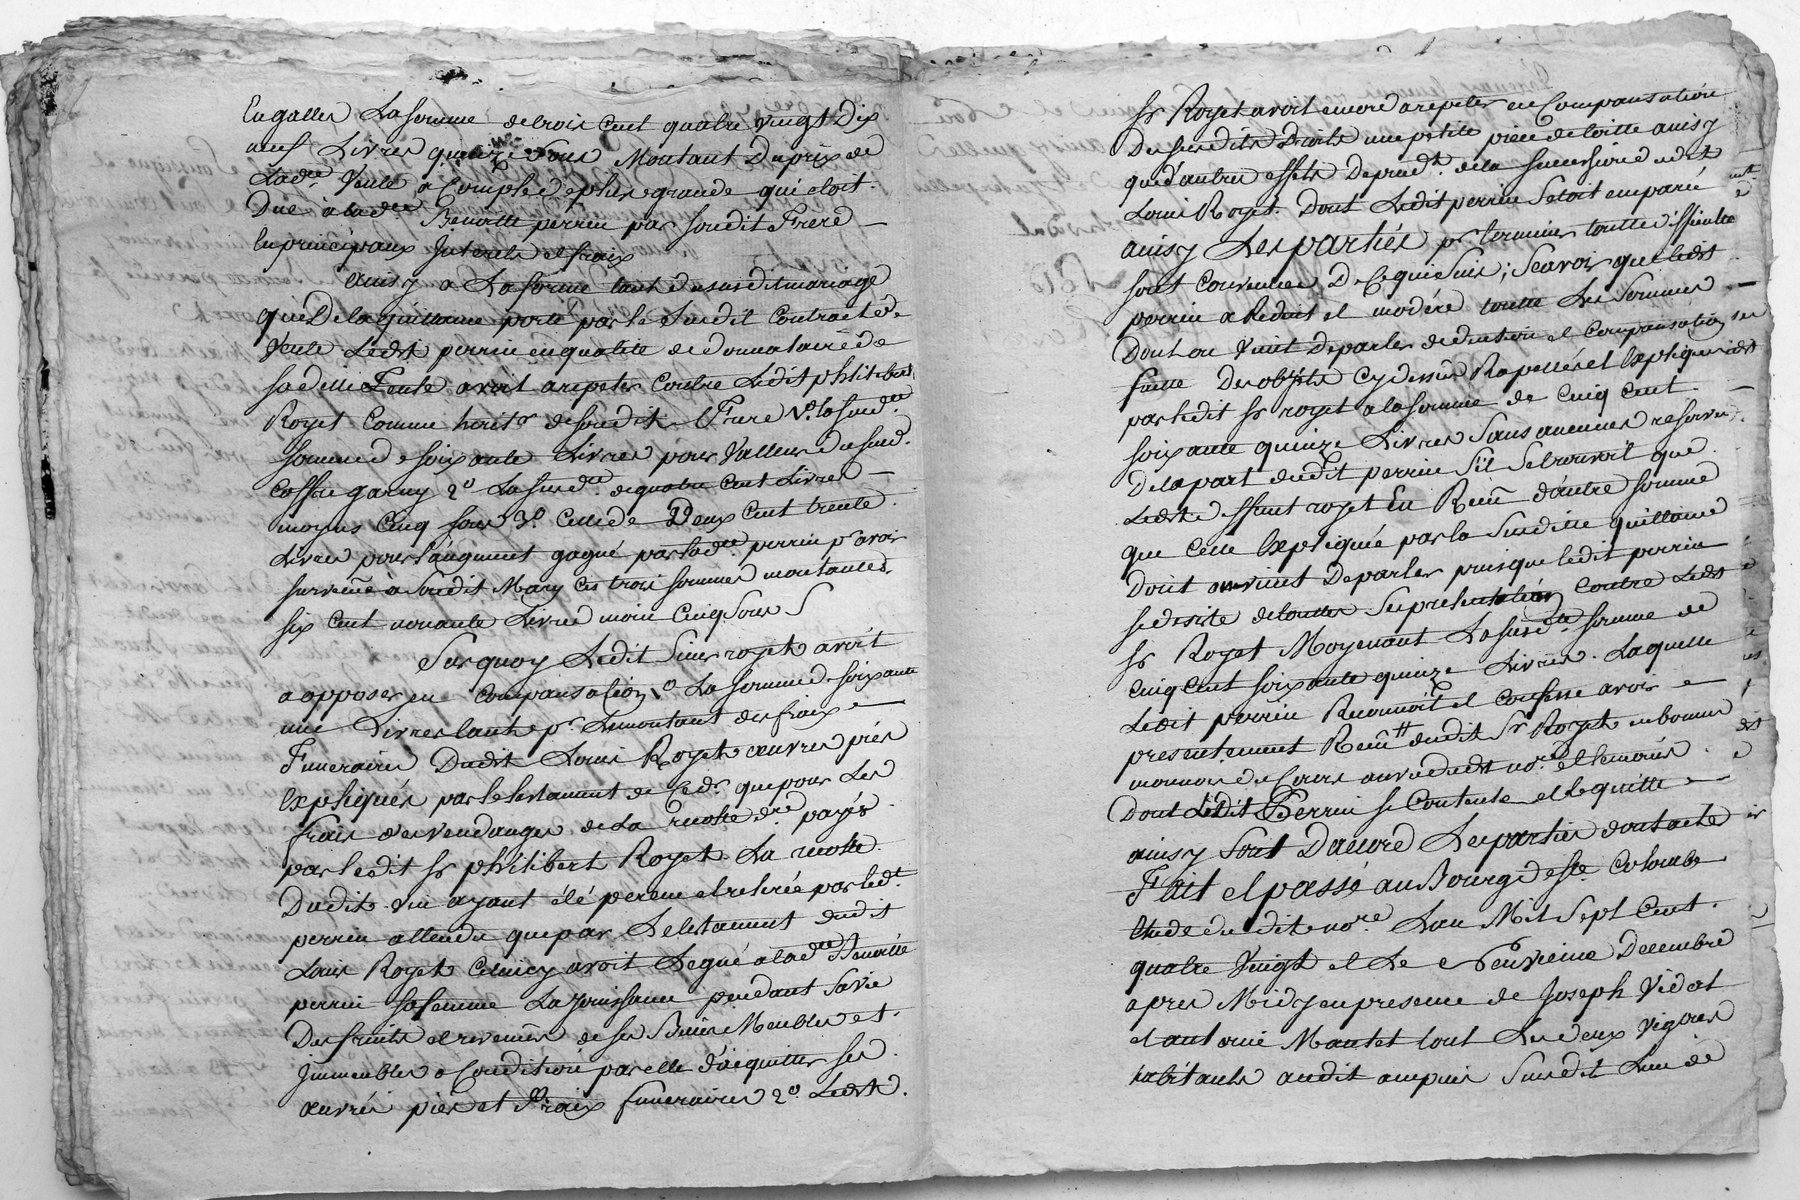 Engalles La somme de trois cent quatre vingt Dix
neuf Livres quinze Sous Montant Du prix de
La de Vente a Compte de plus grande qui etoit
Due a la de Benoitte perrin par Sondit Frere
en principaux Interets et fraix
ainsy a La forme tant du susdit mariage
que De la quittance porté par le Susdit Contract de
Vente Ledt perrin en qualité de donnataire de
sa ditte Tente avoit a repeter Contre Ledit philibert
Royet Comme herit desondit Frere la sude
somme de soixante Livres pour Valleur du sud
Coffre garny 2o La susde de quatre Cent Livres
moyns Cinq sous 3o Celle de Deux Cent trente
Livres pour l'augment gagné par lade perrin pr avoir
survecu a Sondit Mary Ces trois sommes montantes
six Cent nonante Livres moin Cinq Sous
Sur quoy Ledit Sieur royet avoit
a opposer en Compansation 1o La somme de soixante
une Livres tant pr Le montant des fraix
Funeraires Dudit Louis Royet œuvres pies
Expliqués par le testament de Cedt que pour Les
frais des Vendanges de La recolte dre payés
par ledit sr philibert Royet La recolte
Dudit Vin ayant été percue et retirée par ledt
perrin attendu que par Le testament dudit
Louis Royet Celuicy avoit Legué a lade Benoitte
perrin sa femme La jouissance pendant Sa vie
Des fruits et revenus de ses Biens Meubles et
Immeubles a Condition par elle d'acquitter ses
œuvres pies et Fraix funeraires 2o Ledt
sr Royet avoit encore a repeter en Compansation
Des susdits Droits une petite piece de toille ainsy
que d'autres effets Dependt de la succession dudit
Louis Royet Dont Ledit perrin Setoit emparé
ainsy Les parties pr terminer toutte difficulte
sont Convenue De Ce qui Suit; Scavoir que ledt
perrin a Reduit et modéré toutte Les Sommes
Dont on Vient De parler deduction et Compansation
faitte Des objets Cy dessus Rapellés et Expliqués
par ledit sr royet a la somme de Cinq Cent
soixante quinze Livres Sans aucunes reserves
De la part dudit perrin S'il Se trouvoit que
Ledt deffunt royet Eu Recu d'autre somme
que Celle Expliquée par la Susditte quittance
Dont on vient De parler puisque ledit perrin
se desiste de touttes Ses pretentions Contre Ledt
sr Royet Moyenant La susde somme de
Cinq Cent soixante quinze Livres Laquelle
Ledit perrin Reconnoit et Confesse avoir
presentement Recu dudit Sr Royet en bonnes
monnoie de Cours au vu dudt nore et temoins
Dont Ledit Perrin se Contente et le quitte
ainsy Sont D'accord Les parties dont acte
Fait et passé au Bourg de ste Colombe
Etude dudit nore L'an Mil Sept Cent
quatre Vingt et Le Neuvieme Decembre
apres Midy en presence de Joseph Vidat
et antoine Mantet tout Les deux Vignrs
habitants audit ampuis Susdit Lieu de